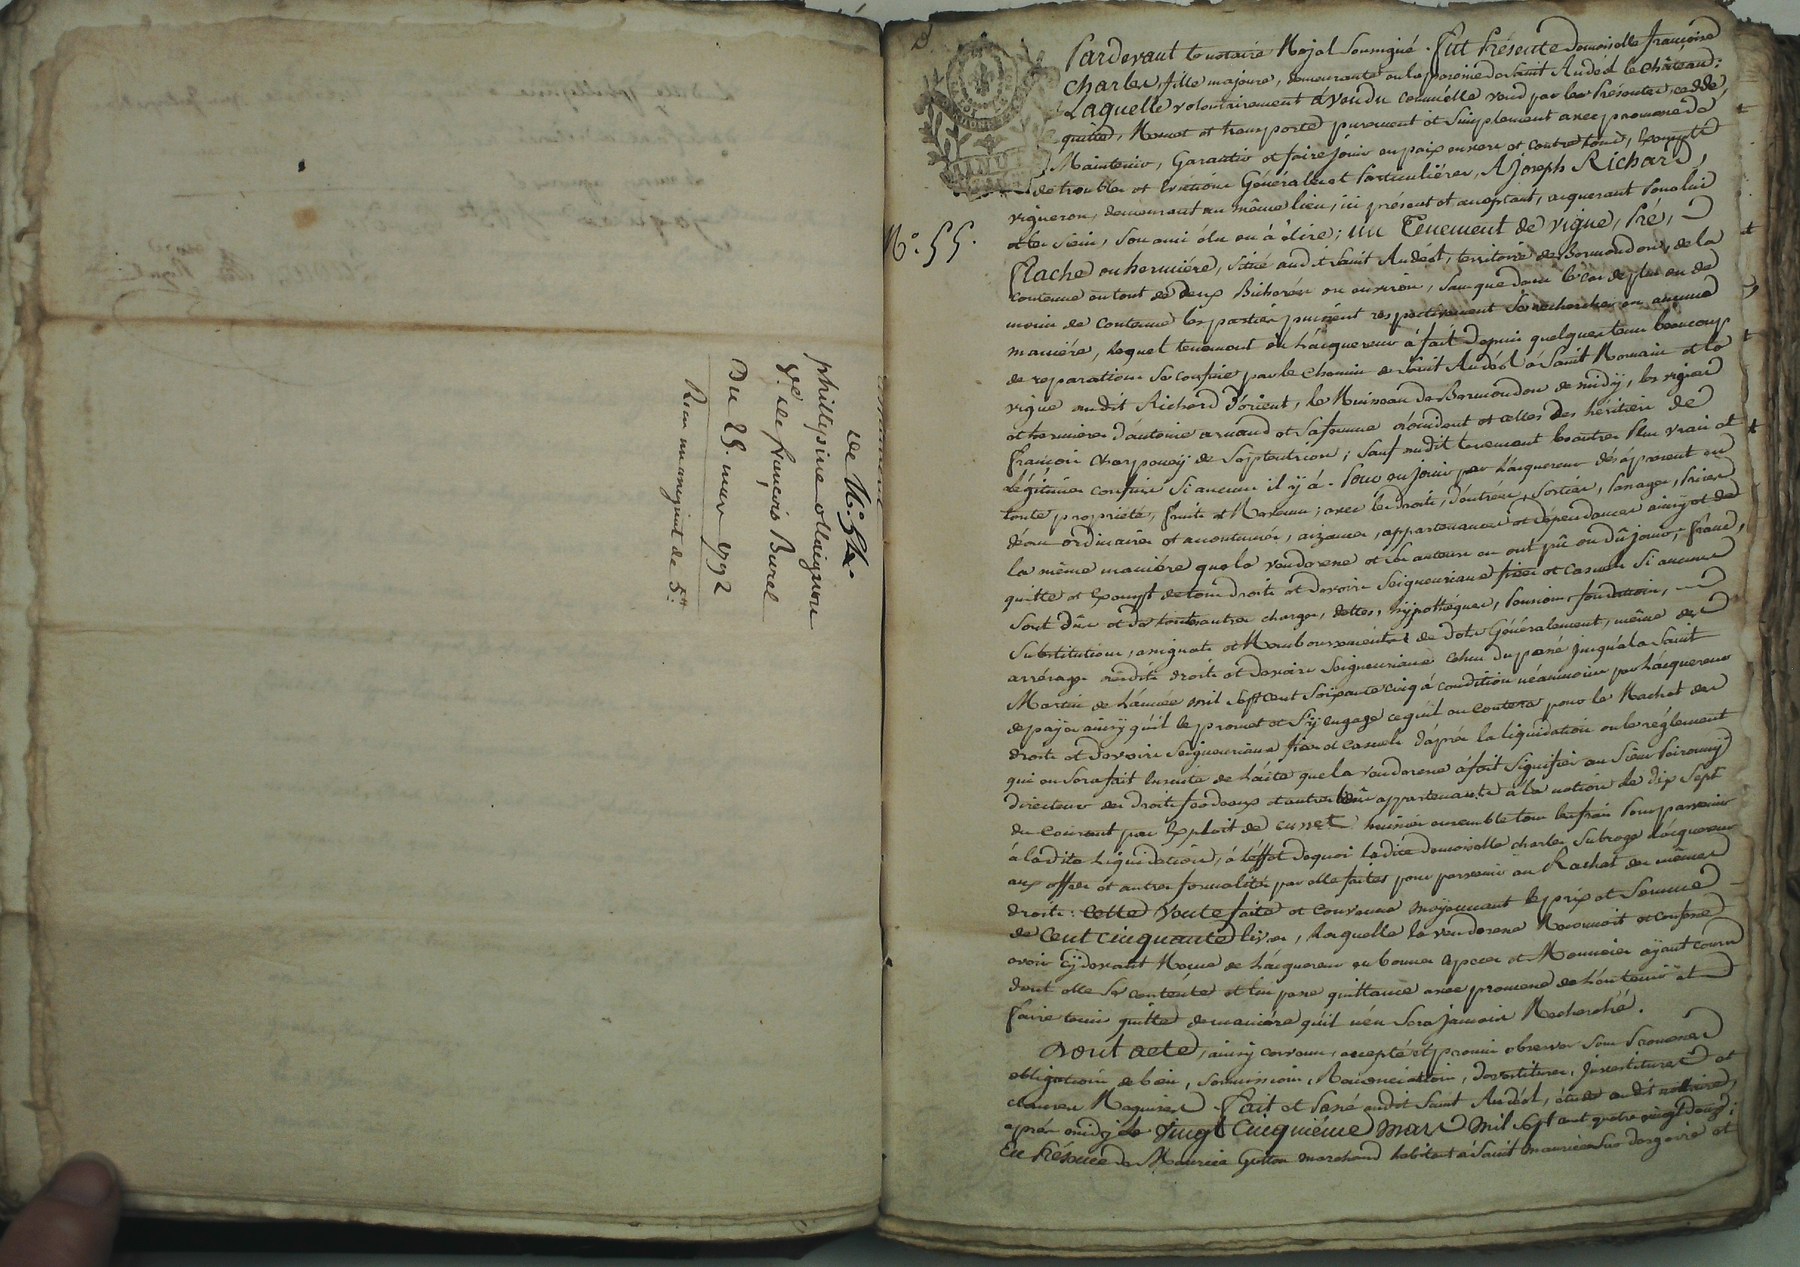 De N.° 54.
phillipine ollaignon
V.e de françois Burel
Du 25. mars 1792
N.° 55.
Pardevant le notaire Royal Soussigné. Fut Présente Demoiselle françoise
Charles, fille majeure, demeurante en la paroisse de Saint Andéol le Château;
Laquelle volontairement a vendu comm'elle vend par les Présentes, cedde,
quitte, Remet et transporte purement et Simplement avec promesse de
Maintenir, Garantir et faire jouir en paix envers et contre tous, Exempt
de troubles et Evictions Générales et Particulières, A Joseph Richard,
vigneron, demeurant au même lieu, ici présent et acceptant, acquerant Pour lui
et les Siens, Son ami élu ou à élire; un Tenement de vigne, Pré,
Flache ou hermière, Situé audit Saint Andéol, territoire de Bormondon, de la
contenue en tout de deux Bicherées ou environ, Sans que dans le cas de plus ou de
moins de contenue les parties puissent respectivement Se rechercher en aucune
manière, lequel tenement où l'acquereur à fait Depuis quelques tems beaucoup
de reparations Se confine par le chemin de Saint Andéol à Saint Romain et la
vigne audit Richard d'orient, le Ruisseau de Bormondon de midÿ, les vignes
et hermières d'antoine arnaud et Sa femme d'occident et celles des héritiers de
François Charpoueÿ de Septentrion; Sauf audit tenement les autres Plus vrais et
Légitimes confins Si aucuns il ÿ à. Pour en jouir par l'acquereur dès àprésent en
toute propriété, fruits et Revenus; avec les droits, d'entrées, Sorties, Passages, Prises
d'eau ordinaires et accoutumés, aizances, appartenances et dépendances ainsÿ et de
la même manière que la venderesse et Ses auteurs en ont pû ou dû jouir, franc,
quitte et Exempt de tous droits et devoirs Seigneuriaux fixes et Casuels Si aucuns
Sont dûs et de toutes autres charges, dettes, hÿpothéques, Pensions, fondations,
Substitutions, assignats et Remboursements de dots Généralement, même des
arrérages desdits droits et devoirs Seigneuriaux échus du passé jusqu'à la Saint
Martin de l'année mil Sept cent Soixante cinq à condition néanmoins par l'acquereur
de paÿer ainsÿ qu'il le promet et S'ÿ engage ce qu'il en coutera pour le Rachat des
droits et devoirs Seigneuriaux fixes et Casuels d'après la liquidation ou le règlement
qui en Sera fait Ensuite de l'acte que la venderesse à fait Signifier au Sieur
directeur des droits féodaux et autres biens appartenants à la nation le dix Sept
du courant par Exploit de cusset huissier ensemble tous les frais Pour parvenir
à la dite Liquidation, à l'effet de quoi ladite demoiselle charles Subroge l'acquereur
aux offres et autres formalités par elle faites pour parvenir au Rachat des mêmes
droits: cette vente faite et convenue moÿennant le prix et Somme
de cent cinquante livres, Laquelle la venderesse Reconnoit et confesse
avoir cÿ devant Reçue de l'acquereur en bonnes espèces et Monnoies aÿant cours
dont elle Se contente et lui passe quittance avec promesse de l'en tenir et
faire tenir quitte de manière qu'il n'en Sera jamais Recherché.
Dont acte, ainsÿ convenu, accepté et promis observer Sous Serment
obligations de biens, Soumissions, Renonciations, devestitures, Investitures et
clauses Requises. Fait et Passé audit Saint Andéol, étude dudit nottaire,
après midÿ Le vingt cinquième mars Mil Sept cent quatre vingt douze;
En Présence de Maurice Gutton marchand habitant à Saint maurice sur dargoire et